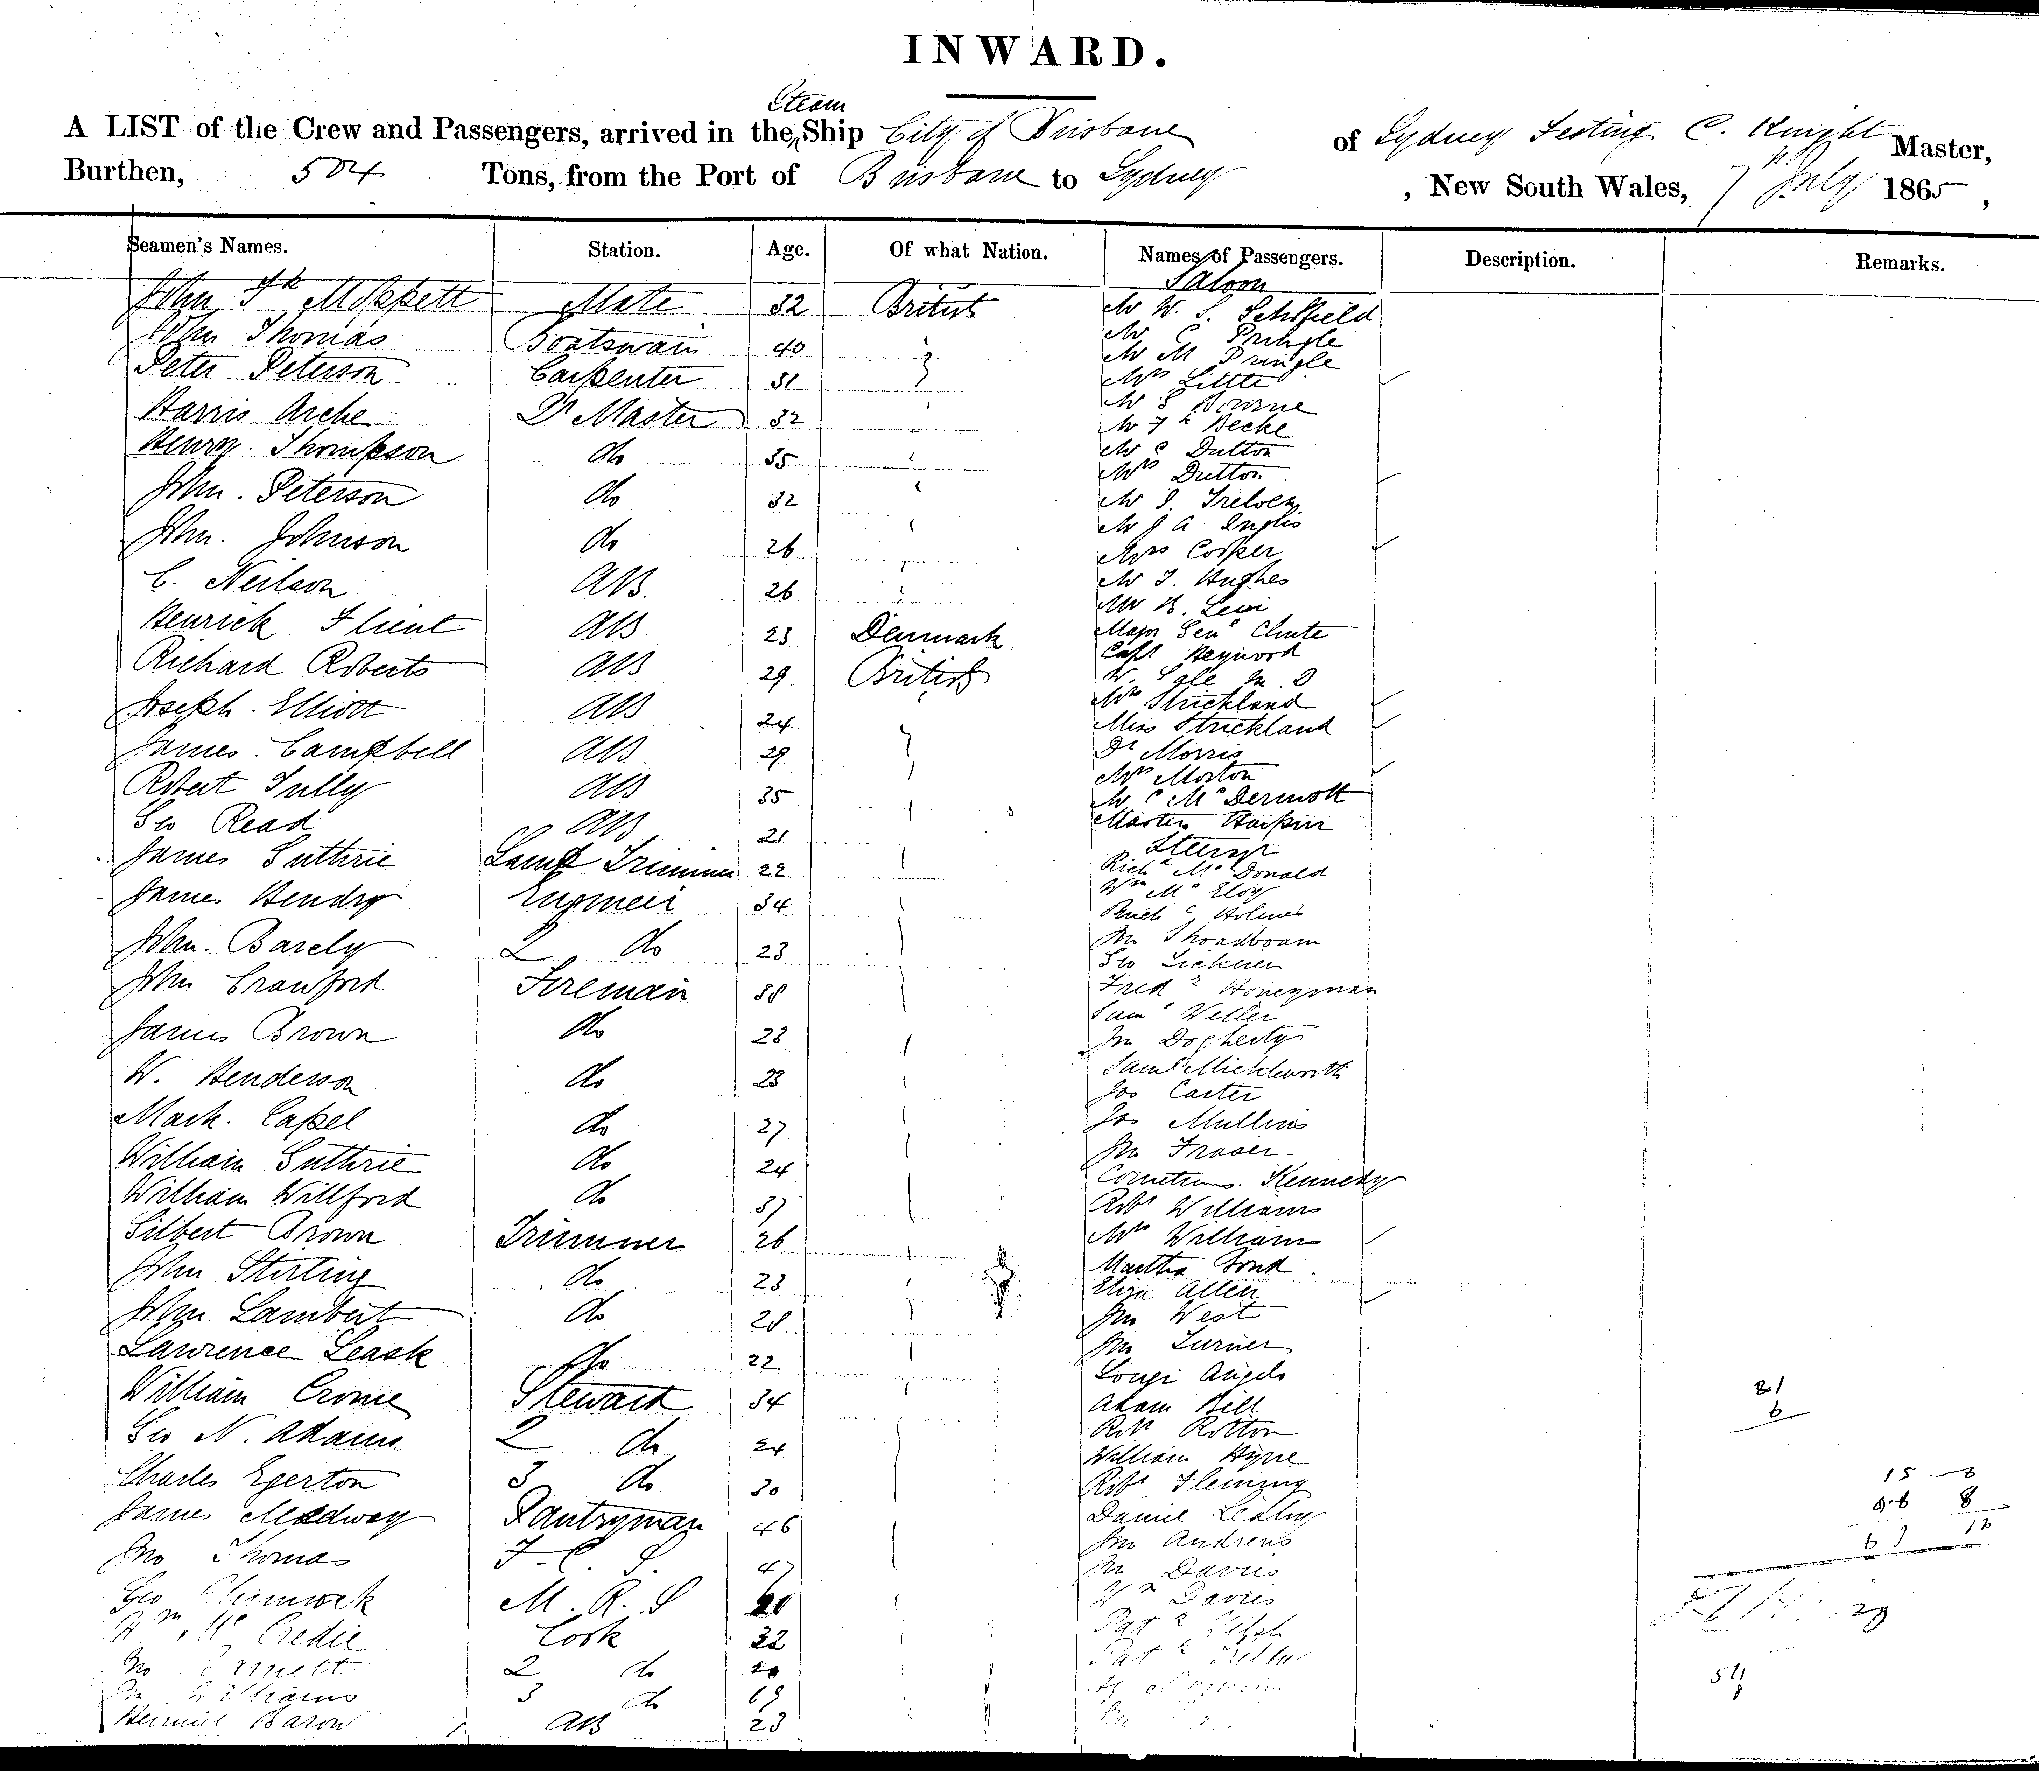 INWARD.
Steam
A LIST of the Crew and Passengers, arrived in the Ship City of Brisbane of Sydney Testing C. Knight Master,
Burthen, 504 Tons, from the Port of Brisbane to Sydney, New South Wales, 7th July 1865,
Seamen's Names. Station. Age. Of what Nation. Names of Passengers. Description. Remarks.
Saloon
John Fk Moppett Mate 32 British Mr W. S. Schofield
John Thomas Boatswain 40 Mr C Pringle
Mr M Pringle
Peter Peterson Carpenter 31 Mrs Little
Harris Arche Qr Master 32 Mr S Bourne
Mr Fk Becke
Henry Thompson do 35 Mr C Dutton
Mrs Dutton
John Peterson do 32 Mr J. Treloen
Mr J A Inglis
John Johnson do 26 Mrs Cooper
C. Neilson AB 26 Mr T. Hughes
Mr H. Levi
Henrick Flient AB 23 Denmark Major Genl Chute
Richard Roberts AB 29 British Capt Heywood
Joseph Elliott AB 24 Mrs Strickland
Miss Strickland
James Campbell AB 29 Dr Morris
Mrs Morton
Robert Tully AB 35 Mr C McDermott
Geo Read AB 21 Master Harpur
Steerage
James Guthrie Lamp Trimmer 22 Richd McDonald
Wm McEloy
James Hendry Engineer 34 Richd Holmes
John Barely 2 do 23 Jno Shoadboam
Geo Lickner
John Crawford Fireman 38 Fredk Honeyman
Saml Weller
James Brown do 28 Jno Dogherty
W. Henderson do 23 Saml Micklewith
Jos Carter
Mark Capel do 27 Jos Mullins
William Guthrie do 24 Jno Fraser
Cornelius Kennedy
William Willford do 37 Robt Williams
Gilbert Brown Trimmer 26 Mrs Williams
Martha Bond
John Stirling do 23 Eliza Allen
John Lambert do 28 Jno West
Jno Turner
Lawrence Leask do 22 Longi Angelo
William Crome Steward 34 Adam Bill
21
6
Geo N. Adams 2 do 24 Robt Rotton
William Hyne
Charles Egerton 3 do 30 Robt Fleming
James Medway Pantryman 46 Daniel Leahy
Jno Andrews
Jno Thomas F. C. S. 47 Jno Davies
Geo M. R. S 40 Wm Davies
Wm McCredie Cook 32
Jno 2 do
29
Jno Williams 3 do
Baron AB 23